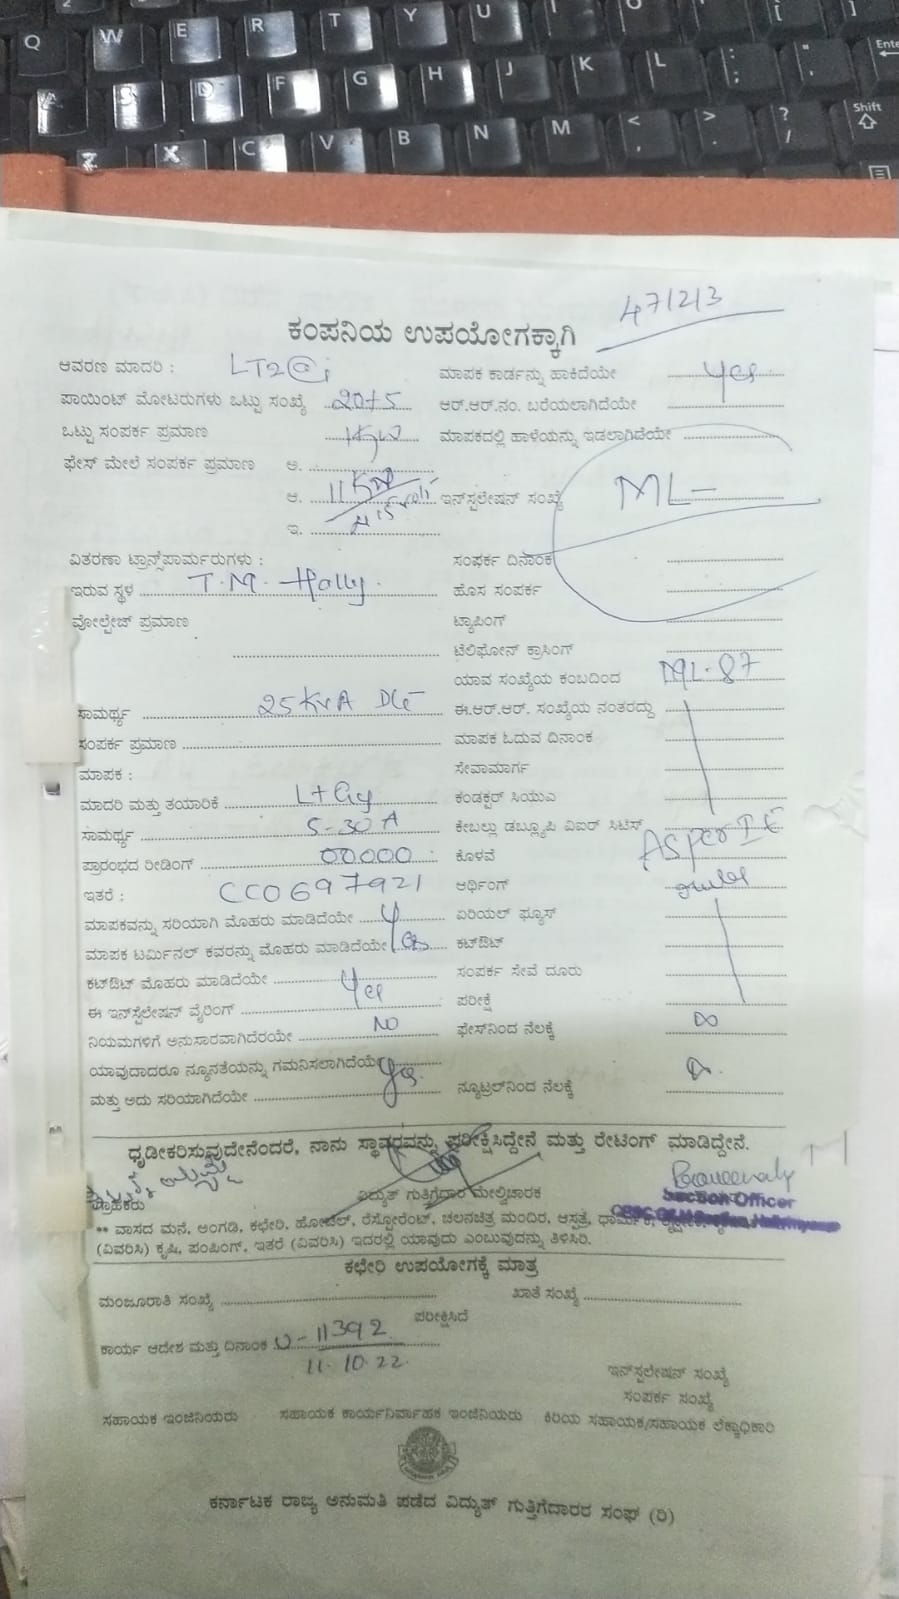 Q W E R T Y U I O [ ]
A S D F G H J K L ; : ' " Enter
Z X C V B N M < , > . ? / Shift
471213
ಕಂಪನಿಯ ಉಪಯೋಗಕ್ಕಾಗಿ
ಆವರಣ ಮಾದರಿ : LT2@i ಮಾಪಕ ಕಾರ್ಡನ್ನು ಹಾಕಿದೆಯೇ Yes
ಪಾಯಿಂಟ್ ಮೋಟರುಗಳು ಒಟ್ಟು ಸಂಖ್ಯೆ 20+5 ಆರ್.ಆರ್.ನಂ. ಬರೆಯಲಾಗಿದೆಯೇ
ಒಟ್ಟು ಸಂಪರ್ಕ ಪ್ರಮಾಣ 1KW ಮಾಪಕದಲ್ಲಿ ಹಾಳೆಯನ್ನು ಇಡಲಾಗಿದೆಯೇ
ಫೇಸ್ ಮೇಲೆ ಸಂಪರ್ಕ ಪ್ರಮಾಣ ಅ.
ಆ. 11 ಇನ್‌ಸ್ಟಲೇಷನ್ ಸಂಖ್ಯೆ ML-
ಇ.
ವಿತರಣಾ ಟ್ರಾನ್ಸ್‌ಪಾರ್ಮರುಗಳು : ಸಂಪರ್ಕ ದಿನಾಂಕ
ಇರುವ ಸ್ಥಳ T.M. Hally. ಹೊಸ ಸಂಪರ್ಕ
ವೋಲ್ಟೇಜ್ ಪ್ರಮಾಣ ಟ್ಯಾಪಿಂಗ್
ಟೆಲಿಫೋನ್ ಕ್ರಾಸಿಂಗ್
ಯಾವ ಸಂಖ್ಯೆಯ ಕಂಬದಿಂದ ML-87
ಸಾಮರ್ಥ್ಯ 25 KVA ಈ.ಆರ್.ಆರ್. ಸಂಖ್ಯೆಯ ನಂತರದ್ದು
ಸಂಪರ್ಕ ಪ್ರಮಾಣ ಮಾಪಕ ಓದುವ ದಿನಾಂಕ
ಮಾಪಕ : ಸೇವಾಮಾರ್ಗ
ಮಾದರಿ ಮತ್ತು ತಯಾರಿಕೆ L+Gy ಕಂಡಕ್ಟರ್ ಸಿಯುವಿ
ಸಾಮರ್ಥ್ಯ 5-30 A ಕೇಬಲ್ಲು ಡಬ್ಲ್ಯೂಪಿ ವಿಐರ್ ಸಿಟಿಸ್
ಪ್ರಾರಂಭದ ರೀಡಿಂಗ್ 00000 ಕೊಳವೆ AS per I E
ಇತರೆ : CC0697921 ಆರ್ಥಿಂಗ್ rules
ಮಾಪಕವನ್ನು ಸರಿಯಾಗಿ ಮೊಹರು ಮಾಡಿದೆಯೇ ಏರಿಯಲ್ ಫ್ಯೂಸ್
ಮಾಪಕ ಟರ್ಮಿನಲ್ ಕವರನ್ನು ಮೊಹರು ಮಾಡಿದೆಯೇ Yes ಕಟ್‌ಔಟ್
ಕಟ್‌ಔಟ್ ಮೊಹರು ಮಾಡಿದೆಯೇ Yes ಸಂಪರ್ಕ ಸೇವೆ ದೂರು
ಈ ಇನ್‌ಸ್ಟೆಲೇಷನ್ ವೈರಿಂಗ್ ಪರೀಕ್ಷೆ
ನಿಯಮಗಳಿಗೆ ಅನುಸಾರವಾಗಿದೆರಯೇ NO ಫೇಸ್‌ನಿಂದ ನೆಲಕ್ಕೆ ∞
ಯಾವುದಾದರೂ ನ್ಯೂನತೆಯನ್ನು ಗಮನಿಸಲಾಗಿದೆಯೇ
ಮತ್ತು ಅದು ಸರಿಯಾಗಿದೆಯೇ Yes. ನ್ಯೂಟ್ರಲ್‌ನಿಂದ ನೆಲಕ್ಕೆ
ಧೃಡೀಕರಿಸುವುದೇನೆಂದರೆ, ನಾನು ಸ್ಥಾವರವನ್ನು ಪರೀಕ್ಷಿಸಿದ್ದೇನೆ ಮತ್ತು ರೇಟಿಂಗ್ ಮಾಡಿದ್ದೇನೆ.
ಗ್ರಾಹಕರು ವಿದ್ಯುತ್ ಗುತ್ತಿಗೆದಾರ ಮೇಲ್ವಿಚಾರಕ Section Officer
** ವಾಸದ ಮನೆ, ಅಂಗಡಿ, ಕಛೇರಿ, ಹೋಟೆಲ್, ರೆಸ್ಟೋರೆಂಟ್, ಚಲನಚಿತ್ರ ಮಂದಿರ, ಆಸ್ಪತ್ರೆ, ಧಾರ್ಮಿಕ,
(ವಿವರಿಸಿ) ಕೃಷಿ, ಪಂಪಿಂಗ್, ಇತರೆ (ವಿವರಿಸಿ) ಇದರಲ್ಲಿ ಯಾವುದು ಎಂಬುವುದನ್ನು ತಿಳಿಸಿರಿ.
ಕಛೇರಿ ಉಪಯೋಗಕ್ಕೆ ಮಾತ್ರ
ಮಂಜೂರಾತಿ ಸಂಖ್ಯೆ ಖಾತೆ ಸಂಖ್ಯೆ
ಪರೀಕ್ಷಿಸಿದೆ
ಕಾರ್ಯ ಆದೇಶ ಮತ್ತು ದಿನಾಂಕ : 11392
11.10.22.
ಇನ್‌ಸ್ಟಲೇಷನ್ ಸಂಖ್ಯೆ
ಸಂಪರ್ಕ ಸಂಖ್ಯೆ
ಸಹಾಯಕ ಇಂಜಿನಿಯರು ಸಹಾಯಕ ಕಾರ್ಯನಿರ್ವಾಹಕ ಇಂಜಿನಿಯರು ಕಿರಿಯ ಸಹಾಯಕ/ಸಹಾಯಕ ಲೆಕ್ಕಾಧಿಕಾರಿ
ಕರ್ನಾಟಕ ರಾಜ್ಯ ಅನುಮತಿ ಪಡೆದ ವಿದ್ಯುತ್ ಗುತ್ತಿಗೆದಾರರ ಸಂಘ (ರಿ)